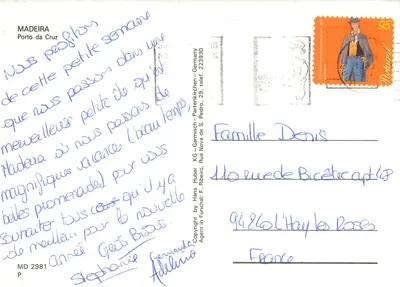 MADEIRA
Porto da Cruz
Nous profitons
de cette petite semaine
que nous passons dans une
merveilleuse petite île qu'est
Madeira où nous passons de
magnifiques vacances (beau temps,
belles promenades) pour vous
souhaiter tous ce qu'il y a
de meilleur pour la nouvelle
année. Gros Bisous
Stephanie
Adelino
MD 2981
P
Copyright by Hans Huber KG - Garmisch - Partenkirchen - Germany
Agent in Funchal: F. Ribeiro, Rua Nova de S. Pedro, 29, telef. 223930
Portugal
Famille Denis
110 rue de Bicêtre apt 48
94240 l'Hay les Roses
France